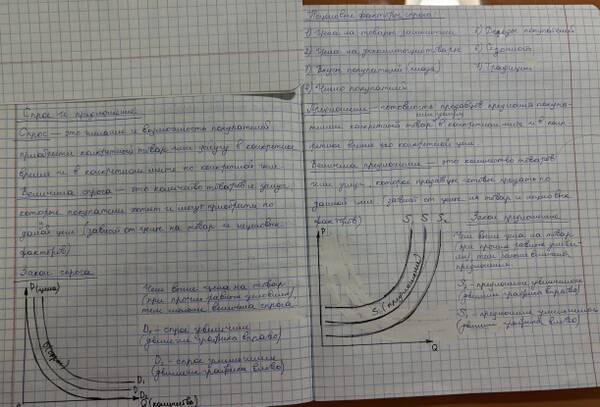 Спрос и предложение
Спрос — это желание и возможность покупателей
приобрести конкретный товар или услугу в конкретное
время и в конкретном месте по конкретной цене
Величина спроса — это количество товаров и услуг,
которые покупатели хотят и могут приобрести по
данной цене (зависит от цены на товар и неценовых
факторов)
Закон спроса
P (цена)
D (спрос)
D₁
D
D₂
Q (количество)
Чем выше цена на товар
(при прочих равных условиях),
тем меньше величина спроса
D₁ – спрос увеличился
(движение графика вправо)
D₂ – спрос уменьшился
(движение графика влево)
Неценовые факторы спроса
1) Цена на товары заменители
2) Цена на дополняющие товары
3) Вкусы покупателей (мода)
4) Число покупателей
5) Доходы покупателей
6) Сезонность
7) Традиции
Предложение — готовность продавцов предложить покупа-
телям конкретный товар в конкретном месте и в конк-
ретное время по конкретной цене
Величина предложения — это количество товаров
или услуг, которое продавцы готовы продать по
данной цене (зависит от цены на товар и неценовых
факторов)
P
S₁
S
S₂
S (предложение)
Q
Закон предложения
Чем выше цена на товар
при прочих равных услови-
ях, тем больше величина
предложения
S₂ – предложение увеличилось
(движение графика вправо)
S₁ – предложение уменьшилось
(движение графика влево)